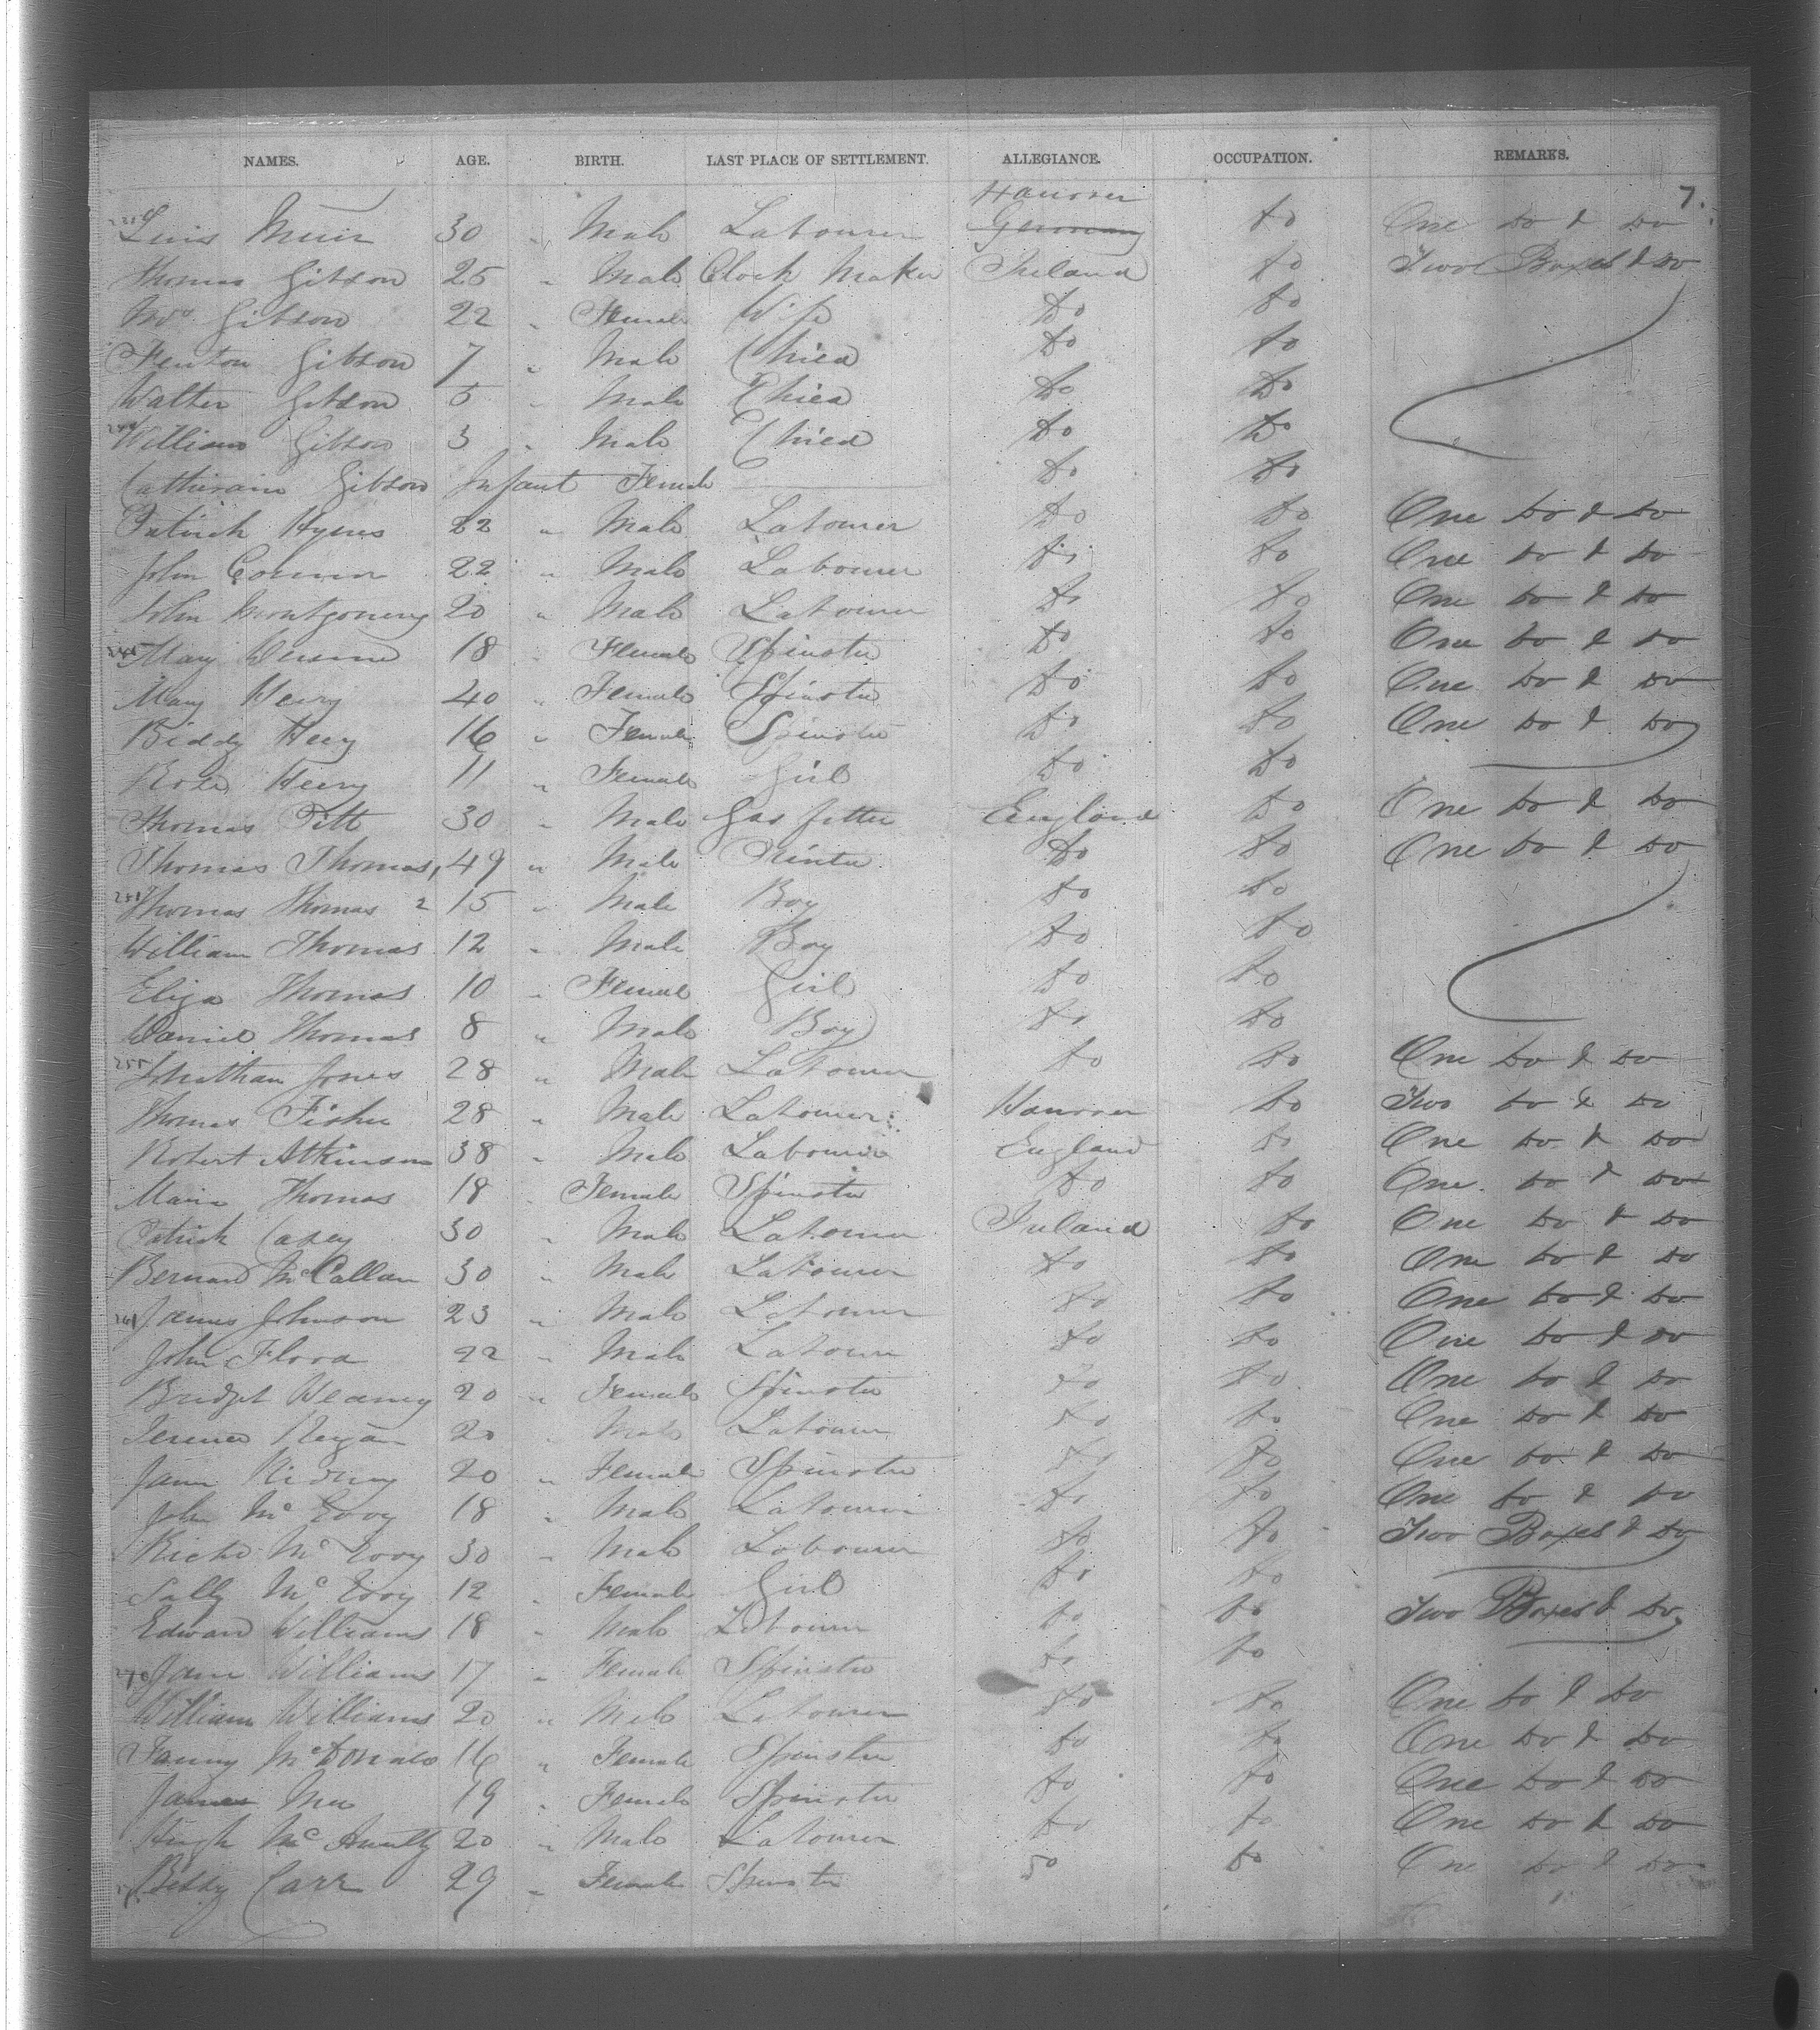 NAMES. AGE. BIRTH. LAST PLACE OF SETTLEMENT. ALLEGIANCE. OCCUPATION. REMARKS.
7.
Hanover
Muir 30 " Male Labourer Germany Do One Do & Do
Thomas Gibson 25 " Male Clock Maker Ireland Do Two Boxes & Do
Mrs Gibson 22 " Female Wife Do Do
Fenton Gibson 7 " Male Chied Do Do
Walter Gibson 5 " Male Chied Do Do
William Gibson 3 " Male Chied Do Do
Gibson Infant Female Do Do
Patrick Hynes 22 " Male Labourer Do Do One Do & Do
John Connor 22 " Male Labourer Do Do One Do & Do
John Montgomery 20 " Male Labourer Do Do One Do & Do
Mary 18 " Female Spinster Do Do One Do & Do
Mary Henry 40 " Female Spinster Do Do One Do & Do
Biddy Henry 16 " Female Spinster Do Do One Do & Do
Rose Henry 11 " Female Girl Do Do
Thomas Pitt 30 " Male Gas fitter England Do One Do & Do
Thomas Thomas 1 49 " Male Printer Do Do One Do & Do
251 Thomas Thomas 2 15 " Male Boy Do Do
William Thomas 12 " Male Boy Do Do
Eliza Thomas 10 " Female Girl Do Do
Daniel Thomas 8 " Male Boy Do Do
255 Johnathan Jones 28 " Male Labourer Do Do One Do & Do
Thomas Fisher 28 " Male Labourer Hanover Do Two Do & Do
Robert Atkinson 38 " Male Labourer England Do One Do & Do
Maria Thomas 18 " Female Spinster Do Do One Do & Do
Patrick Casey 30 " Male Labourer Ireland Do One Do & Do
Bernard McCallan 30 " Male Labourer Do Do One Do & Do
261 James Johnson 23 " Male Labourer Do Do One Do & Do
John Flood 22 " Male Labourer Do Do One Do & Do
Bridget Heaney 20 " Female Spinster Do Do One Do & Do
Terence Regan 20 " Male Labourer Do Do One Do & Do
Jane 20 " Female Spinster Do Do One Do & Do
John McEvoy 18 " Male Labourer Do Do One Do & Do
Richd McEvoy 30 " Male Labourer Do Do Two Boxes & Do
Sally McEvoy 12 " Female Girl Do Do
Edward Williams 18 " Male Labourer Do Do Two Boxes & Do
270 Jane Williams 17 " Female Spinster Do Do
William Williams 20 " Male Labourer Do Do One Do & Do
Fanny McDonald 16 " Female Spinster Do Do One Do & Do
James 19 " Female Spinster Do Do One Do & Do
Hugh 20 " Male Labourer Do Do One Do & Do
Biddy Carr 29 " Female Spinster Do Do One Do & Do